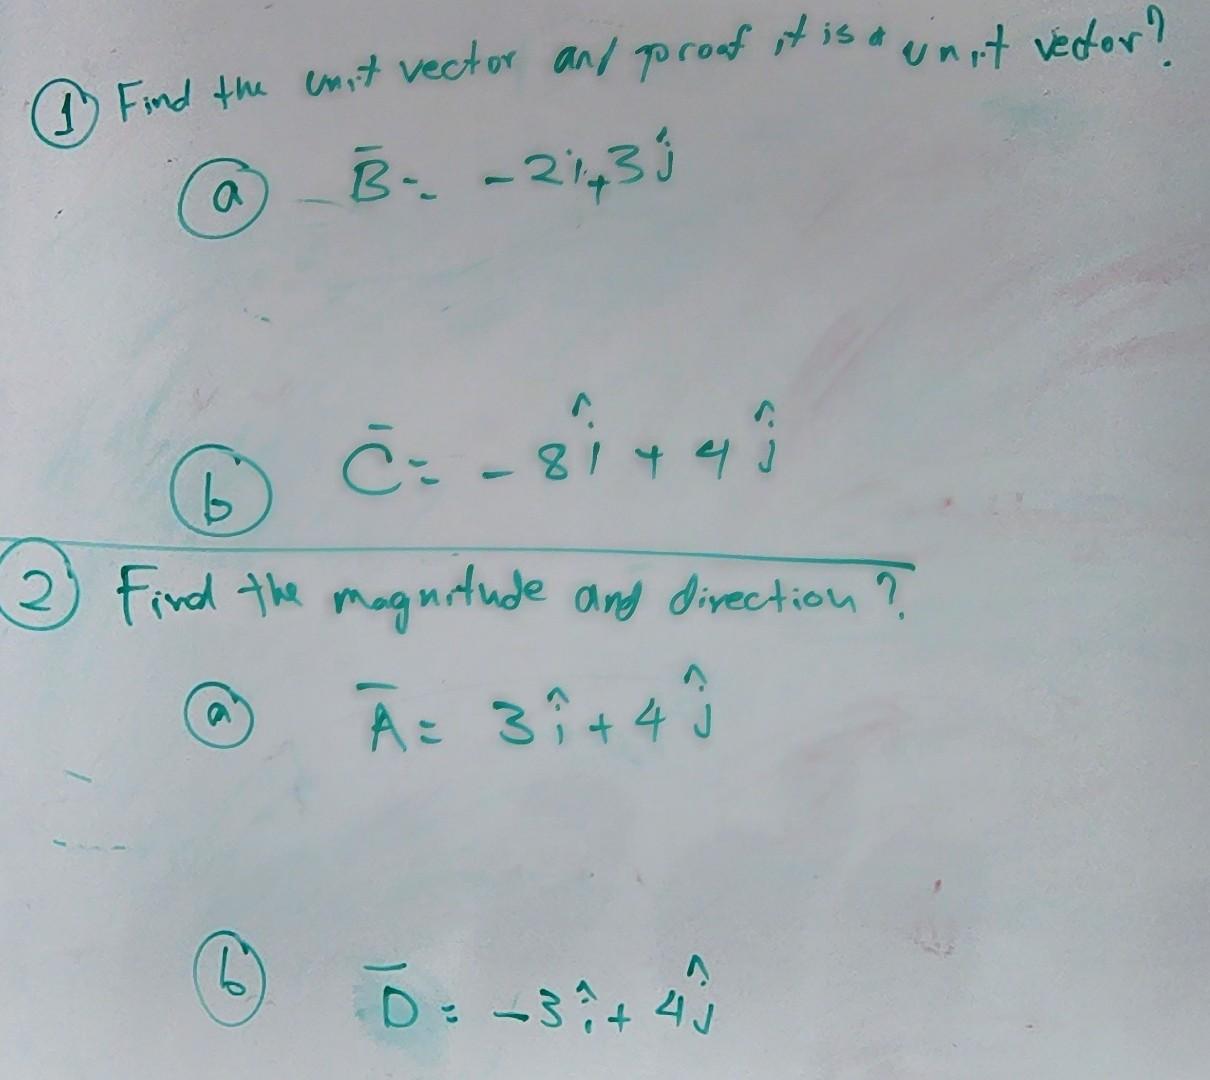 ① Find the unit vector and proof it is a unit vector?
ⓐ B̄ = -2i + 3ĵ
ⓑ C̄ = -8î + 4ĵ
② Find the magnitude and direction?
ⓐ A̅ = 3î + 4ĵ
ⓑ D̅ = -3î + 4ĵ